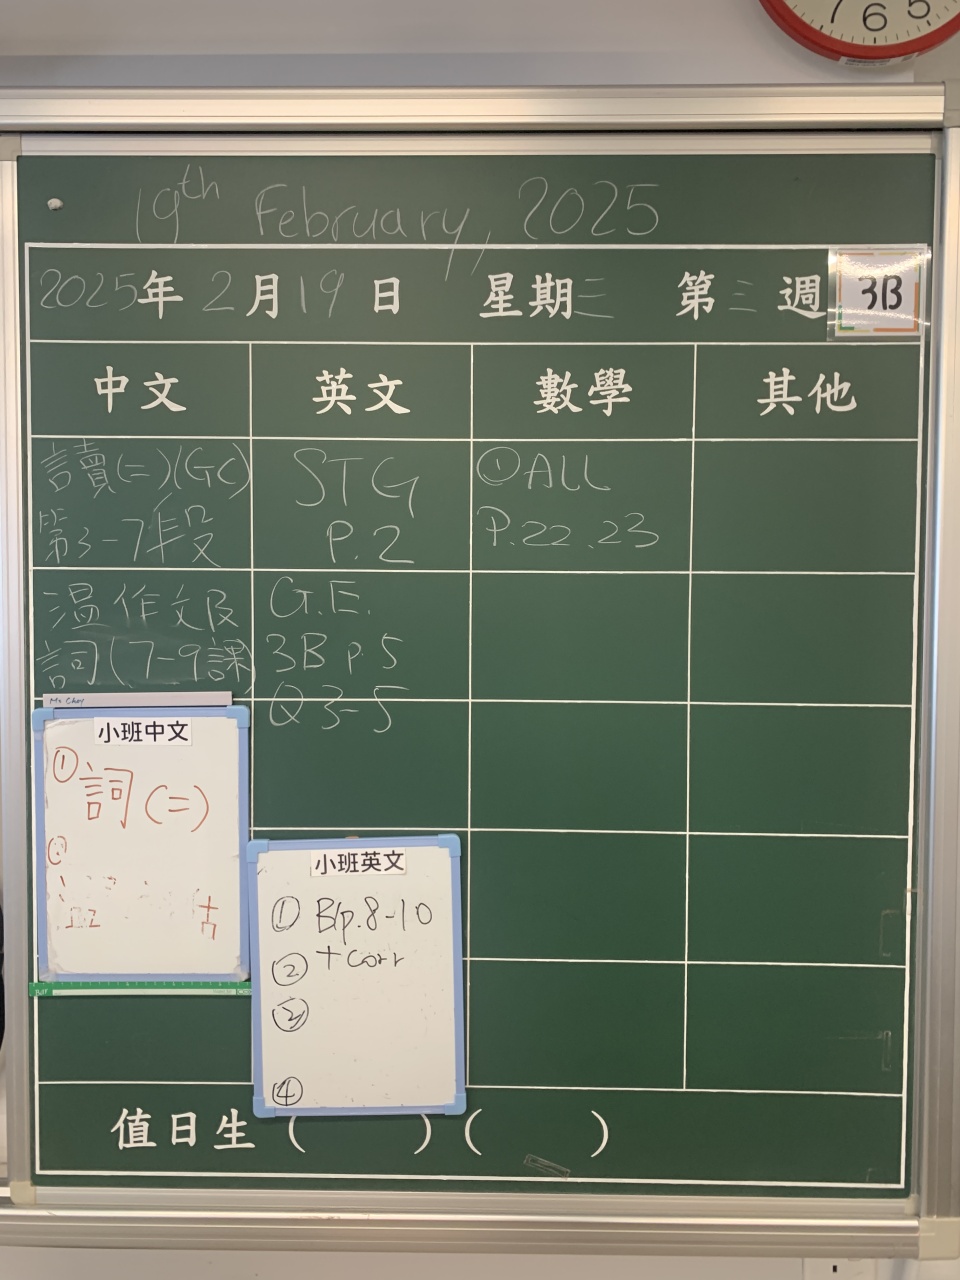 7 6 5
19th February, 2025
2025年2月19日 星期三 第三週 3B
中文 英文 數學 其他
讀(二)(GC)
第3-7段
STG
P.2
①ALL
P.22,23
温作文及
詞(7-9課)
G.E.
3B p.5
Q3-5
Ms Choy
小班中文
① 詞(二)
②
小班英文
① B/p.8-10
② +corr
③
④
值日生( )( )